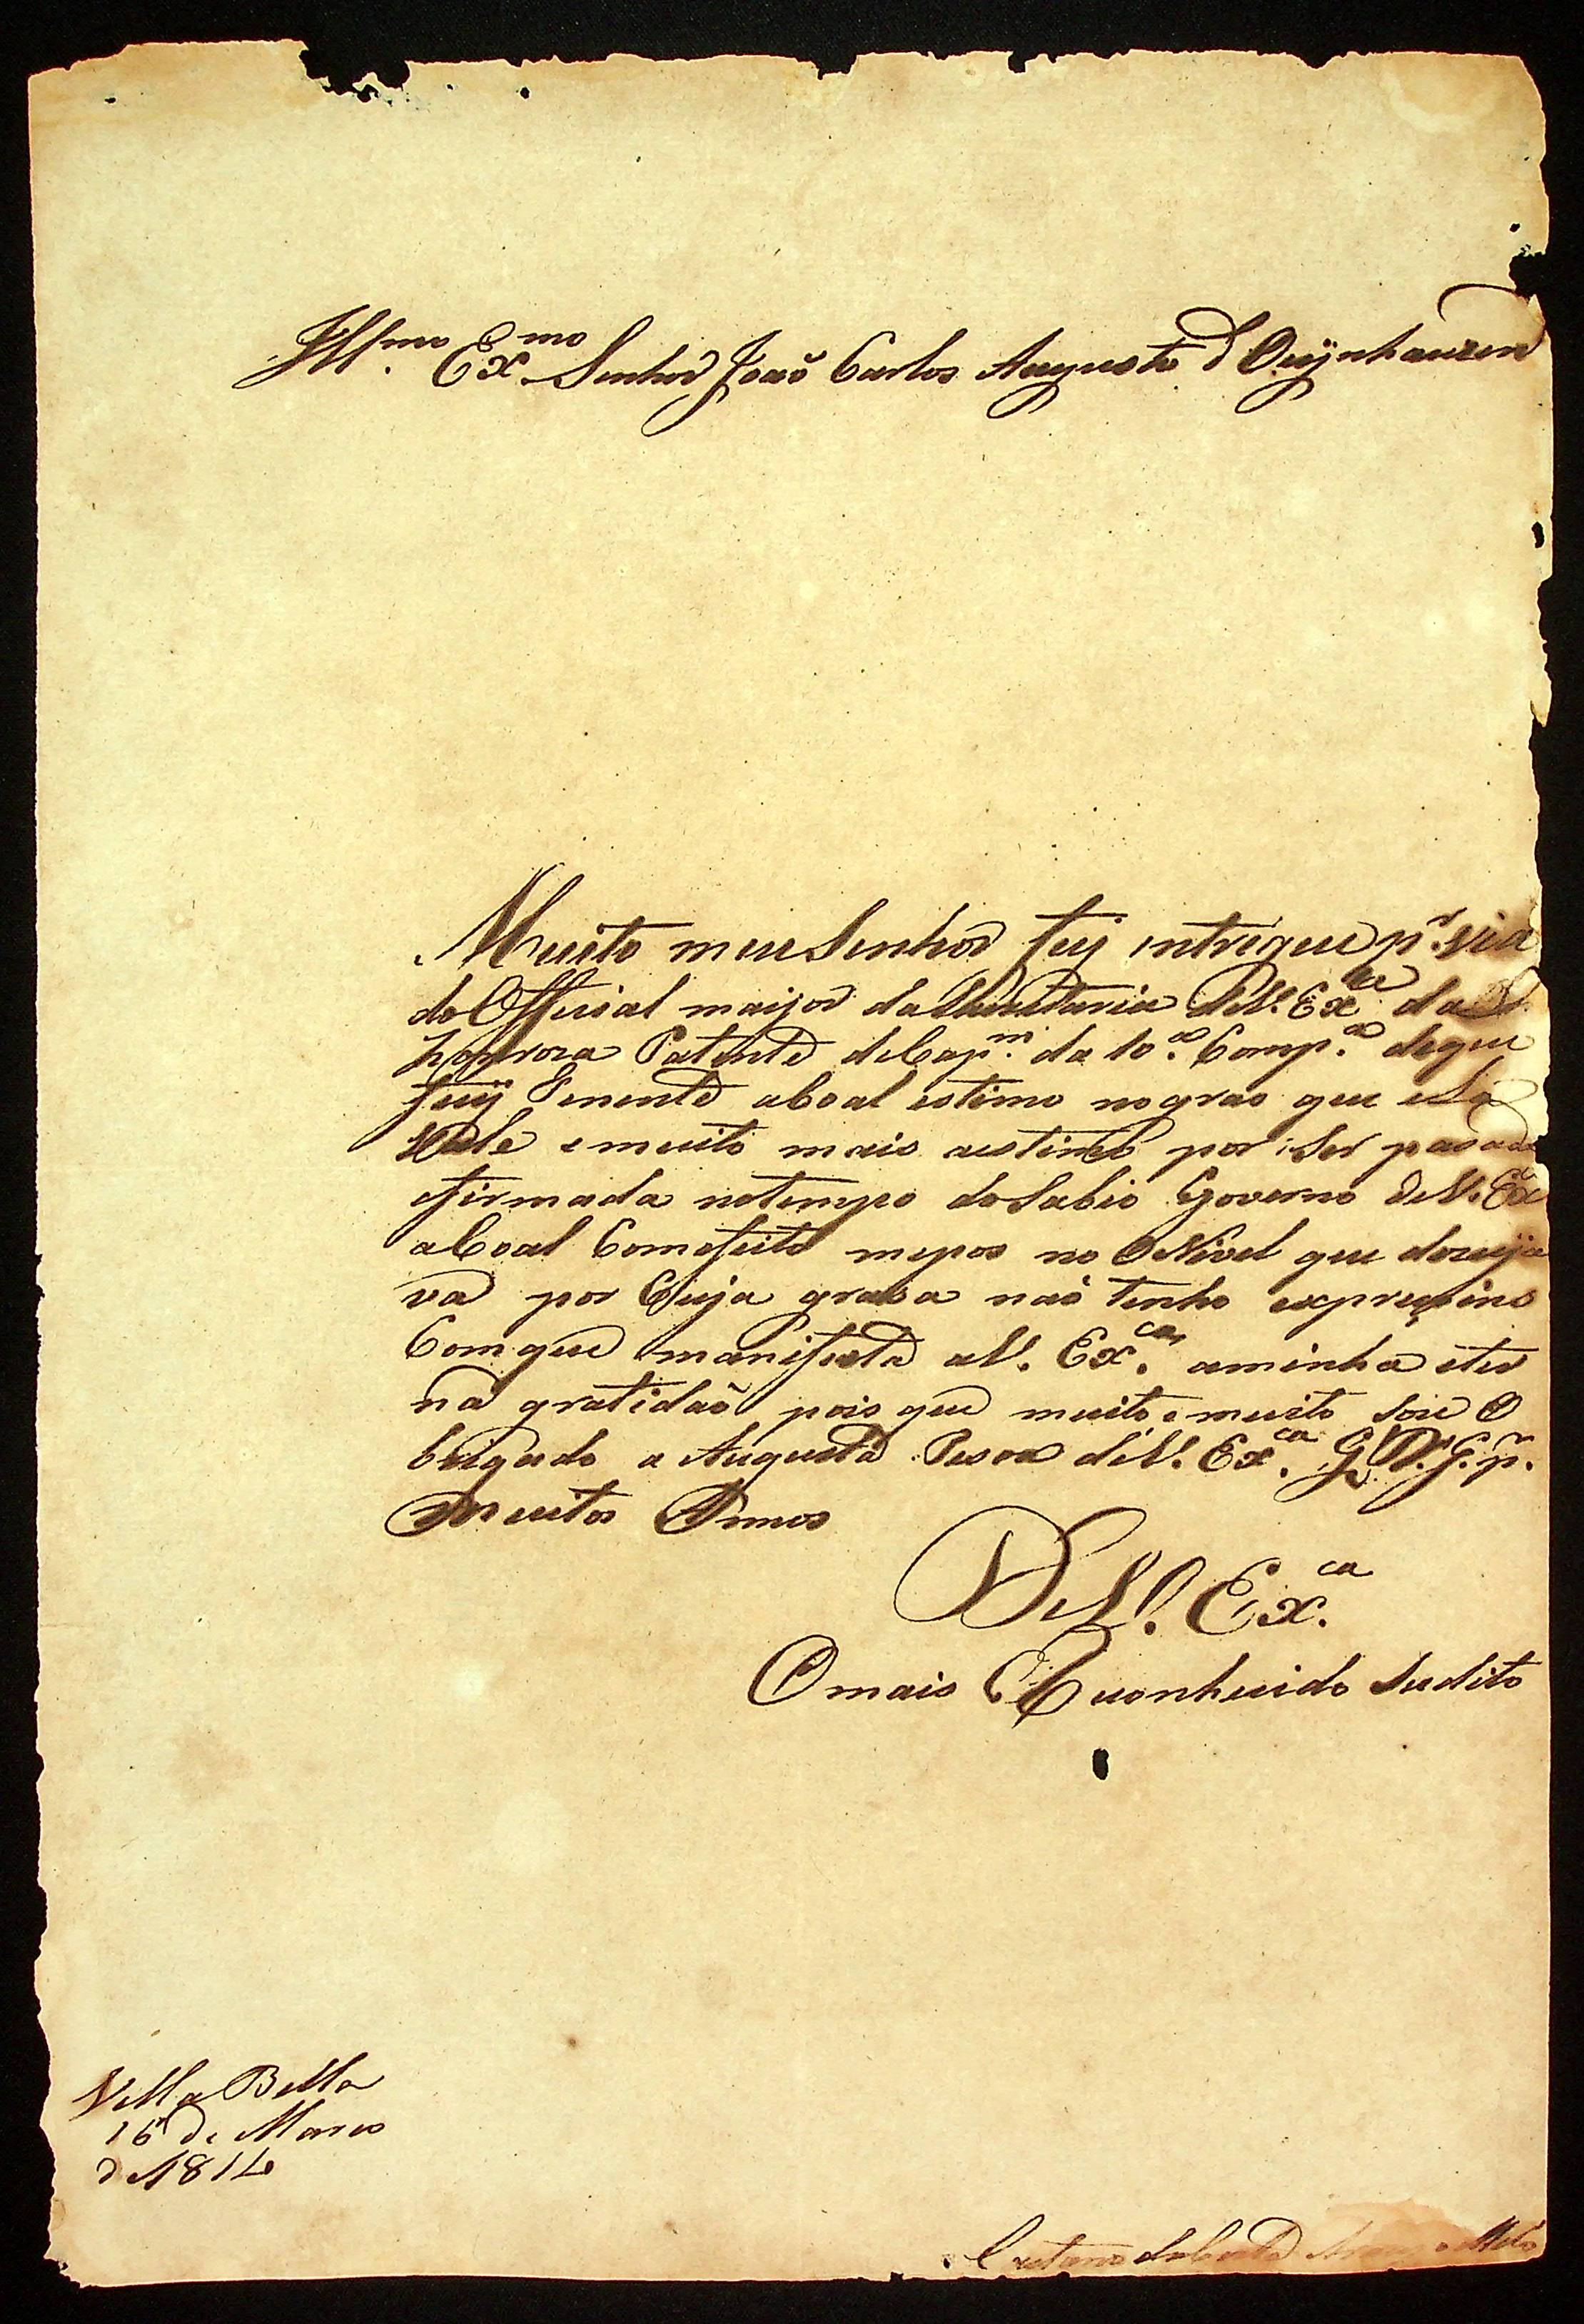 Ill.mo Ex.mo Senhor João Carlos Augusto d Oeÿnhauzen
Muito meu Senhor fuj intregue p.r via
do Official maijor da Secretaria de V. Ex.ca da
honroza Patente de Cap.m da 10.a Comp.a de que
fuÿ Tenente a Coal estimo no grao que ella
Vale e muito mais a estimo por Ser pasada
e firmada no tempo do Sabio Governo de V. Ex
a Coal Com efeito me pos no Nivel que dezeja
va por Cuja grasa não tenho expreçoins
Com que manifeste a V. Ex.ca a minha eter
na gratidão pois que muito e muito sou O
brigado a Augusta Pesoa de V. Ex.ca G. D.s G. p.r
Muitos Annos
De V. Ex.ca
O mais Reconhecido Sudito
Villa Bella
16 de Março
de 1814
Caetano da Costa Araujo e Mello